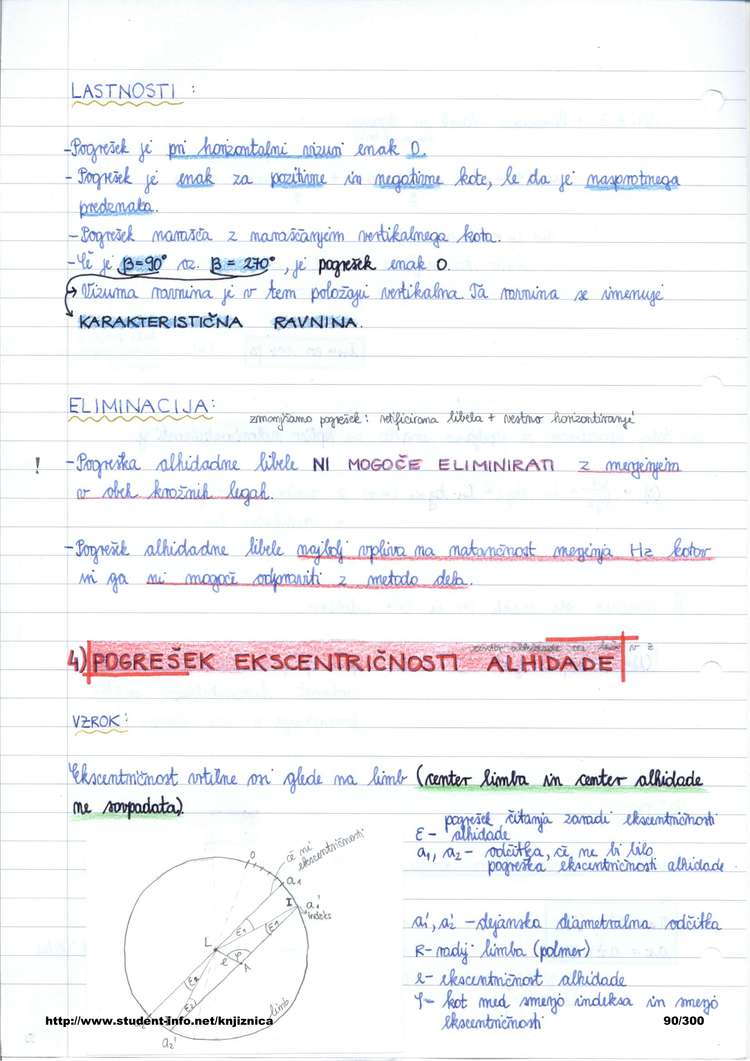 LASTNOSTI :
- Pogrešek je pri horizontalni vizuri enak 0.
- Pogrešek je enak za pozitivne in negativne kote, le da je nasprotnega
predznaka.
- Pogrešek narašča z naraščanjem vertikalnega kota.
- Če je β=90° oz. β = 270°, je pogrešek enak 0.
Vizurna ravnina je v tem položaju vertikalna. Ta ravnina se imenuje
KARAKTERISTIČNA RAVNINA.
ELIMINACIJA: zmanjšamo pogrešek: retificirana libela + vestno horizontiranje
! - Pogreška alhidadne libele NI MOGOČE ELIMINIRATI z merjenjem
v obeh krožnih legah.
- Pogrešek alhidadne libele najbolj vpliva na natančnost merjenja Hz kotov
in ga ni mogoče odpraviti z metodo dela.
4) POGREŠEK EKSCENTRIČNOSTI ALHIDADE
VZROK:
Ekscentričnost vrtilne osi glede na limb (center limba in center alhidade
ne sovpadata).
pogrešek čitanja zaradi ekscentričnosti
ε - alhidade
a1, a2 - odčitka, če ne bi bilo
pogreška ekscentričnosti alhidade
a1', a2' - dejanska diametralna odčitka
R - radij limba (polmer)
e - ekscentričnost alhidade
φ - kot med smerjo indeksa in smerjo
ekscentričnosti
0
če ni
ekscentričnosti
a1
I a1'
indeks
ε1 (ε1)
L
e φ
A
(ε2)
ε2
limb
a2'
http://www.student-info.net/knjiznica 90/300